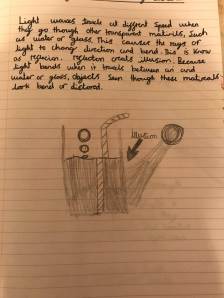 Light waves travle at different speed when
they go through other transparent materills, such
as water or glass. This causes the rays of
light to change direction and bend. This is know
as refrecion. refraction creats illusion. Because
light bends when it travels between air and
water or glass, objects seen though these materials
look bend or distored.
Illusion